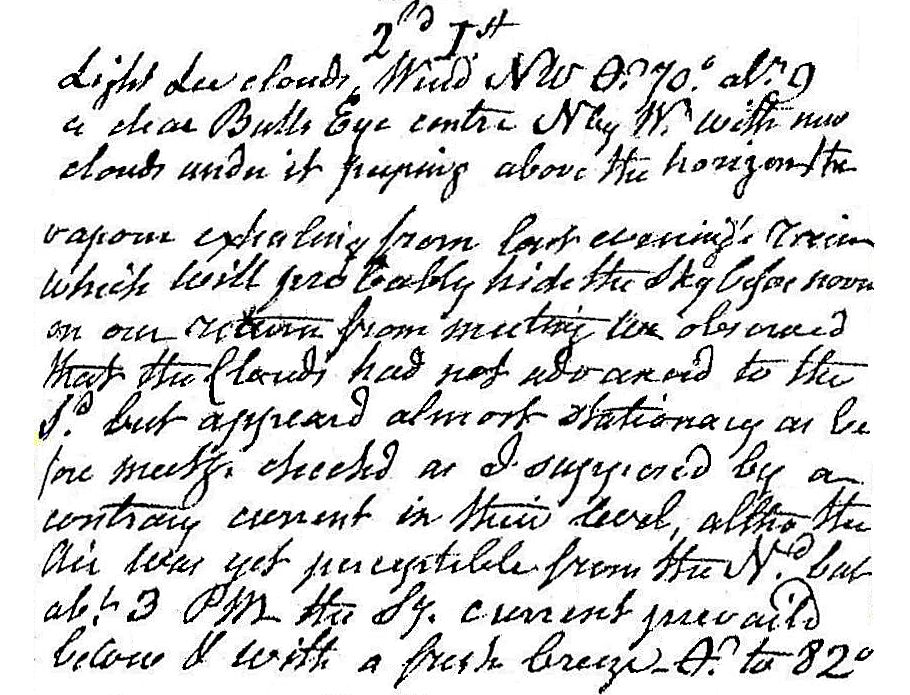 2nd 1st
Light Lee clouds, Wind NW θr 70° abt 9
a clear Bulls Eye centre N by W. with new
clouds under it peeping above the horizon the
vapour exhaling from last evening's rain
which will probably hide the sky before noon
on our return from meeting we observed
that the Clouds had not advanced to the
Sd but appeard almost stationary as be
fore meetg. checked as I supposed by a
contrary current in their level, altho the
Air was yet perceptible from the Nd but
abt 3 PM the Sy. current prevaild
below & with a fresh breeze θr to 82°